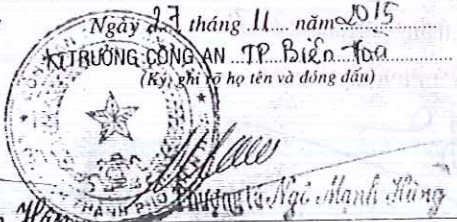 Ngày 27 tháng 11 năm 2015
KT TRƯỞNG CÔNG AN TP Biên Hoà
(Ký, ghi rõ họ tên và đóng dấu)
THÀNH PHỐ
Thượng tá Ngô Mạnh Hùng